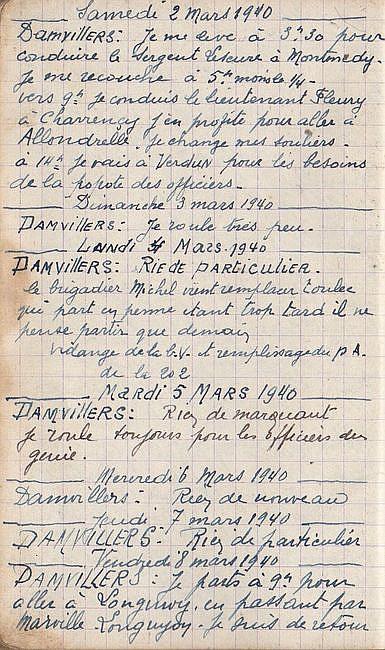 Samedi 2 Mars 1940
DAMVILLERS: Je me leve à 3h30 pour
conduire le sergent Escure à Montmedy.
Je me recouche à 5h moins le 1/4 -
vers 9h je conduis le lieutenant Fleury
à Charrency j'en profite pour aller à
Allondrelle. Je change mes souliers -
à 14h je vais à Verdun pour les besoins
de la popote des officiers -
Dimanche 3 mars 1940
DAMVILLERS: Je roule très peu -
LUNDI 4 MARS-1940
DAMVILLERS: RIE DE PARTICULIER.
le brigadier Michel vient remplacer
qui part en perme etant trop tard il ne
pense partir que demain
vidange de la b.V. et remplissage du P A.
de la 202
Mardi 5 MARS 1940
DAMVILLERS: Rien de marquant
je roule toujours pour les officiers du
genie.
Mercredi 6 Mars 1940
Damvillers: Rien de nouveau
Jeudi 7 mars 1940
DAMVILLERS: Rien de particulier
Vendredi 8 mars 1940
DAMVILLERS: Je parts à 9h pour
aller à Longuwy en passant par
Marville Longuyon. Je suis de retour